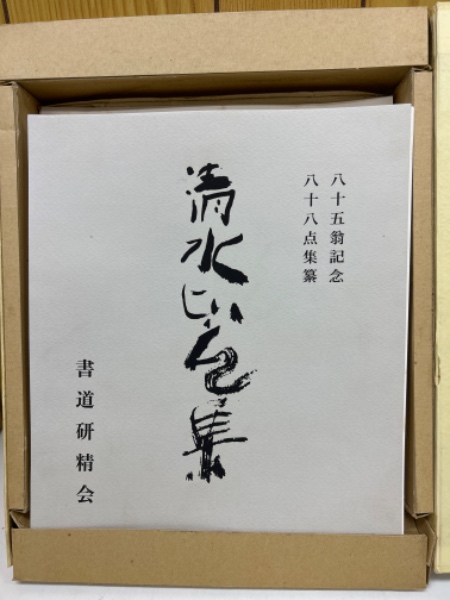 八十五翁記念
八十八点集纂
清水比庵集
書道研精会